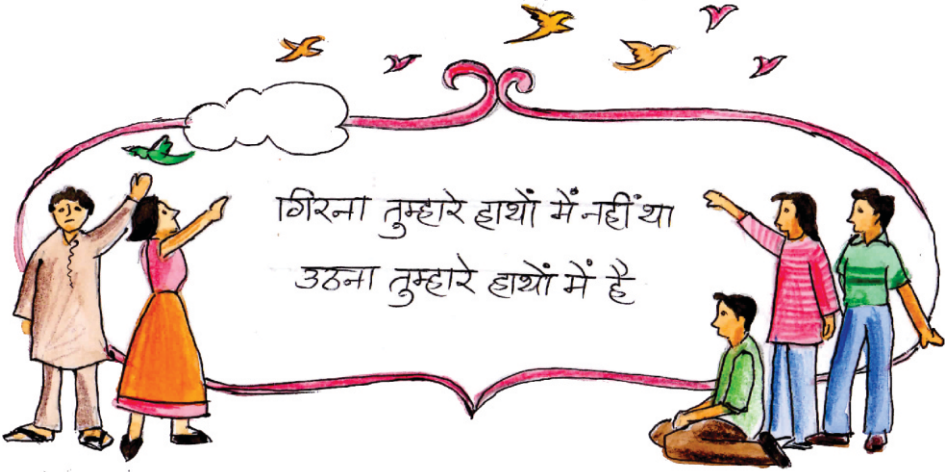 गिरना तुम्हारे हाथों में नहीं था
उठना तुम्हारे हाथों में है